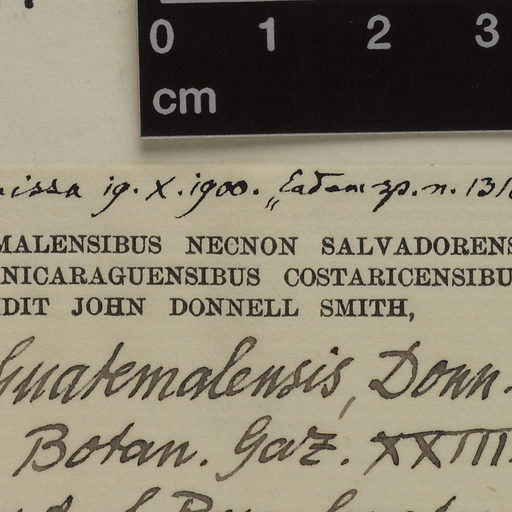 0 1 2 3
cm
19. X. 1900. „Eadem sp. n. 131
MALENSIBUS NECNON SALVADORENS
NICARAGUENSIBUS COSTARICENSIBU
DIT JOHN DONNELL SMITH,
Guatemalensis, Donn.
Botan. Gaz. XXIII.